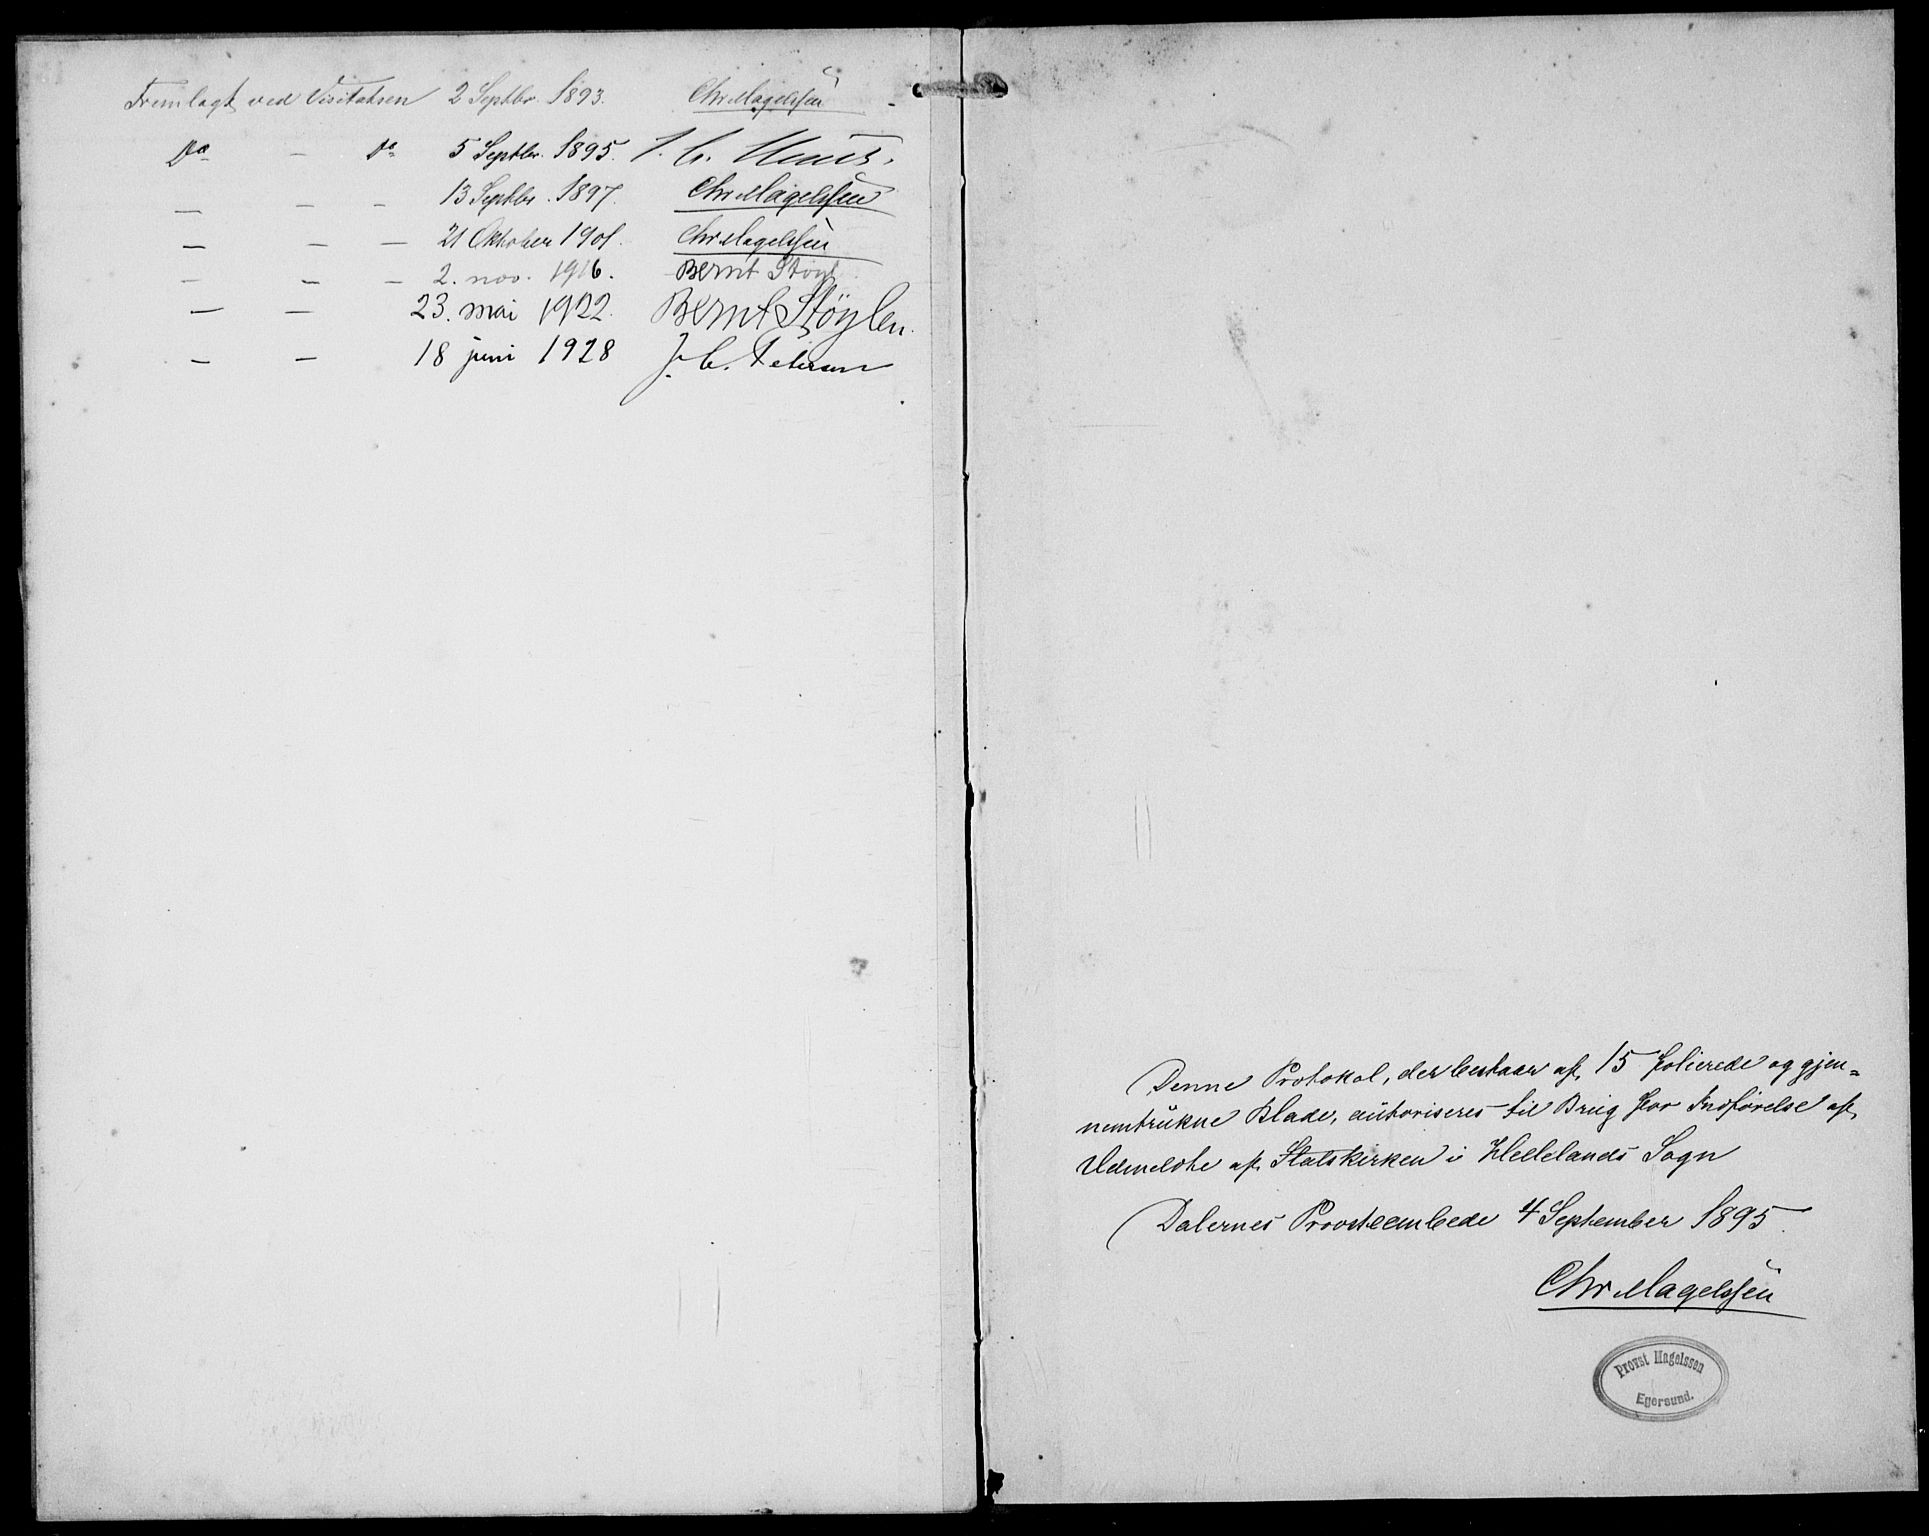 Fremlagt ved Visitatsen 2 Septbr. 1893. Chr Magelssen
Do — do 5 Septbr. 1895.
— — — 13 Septbr. 1897. Chr Magelssen
— — — 21 Oktober 1901. Chr Magelssen
— — — 2. nov. 1916. Bernt Støyl
— — 23. mai 1922. Bernt Støylen.
— — 18 juni 1928 J. C. Petersen
Denne Protokol, der bestaar af 15 folierede og gjen=
nemtrukne Blade, autoriseres til Brug for Indførelse af
Udmeldte af Statskirken i Hellelands Sogn
Dalernes Provsteembede 4 September 1895.
Chr Magelssen
Provst Magelssen
Egersund.